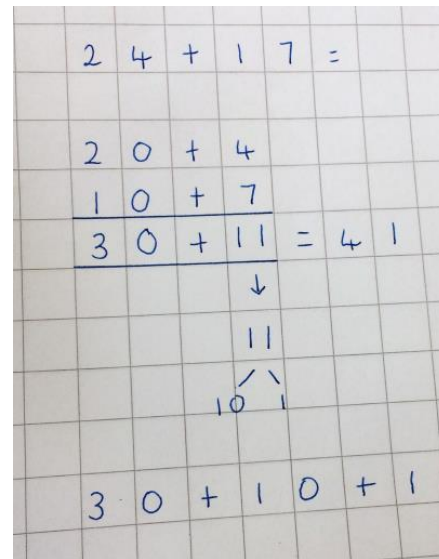 24+17=
20+4
10+7
30+11=41
↓
11
/ \
10 1
30+10+1